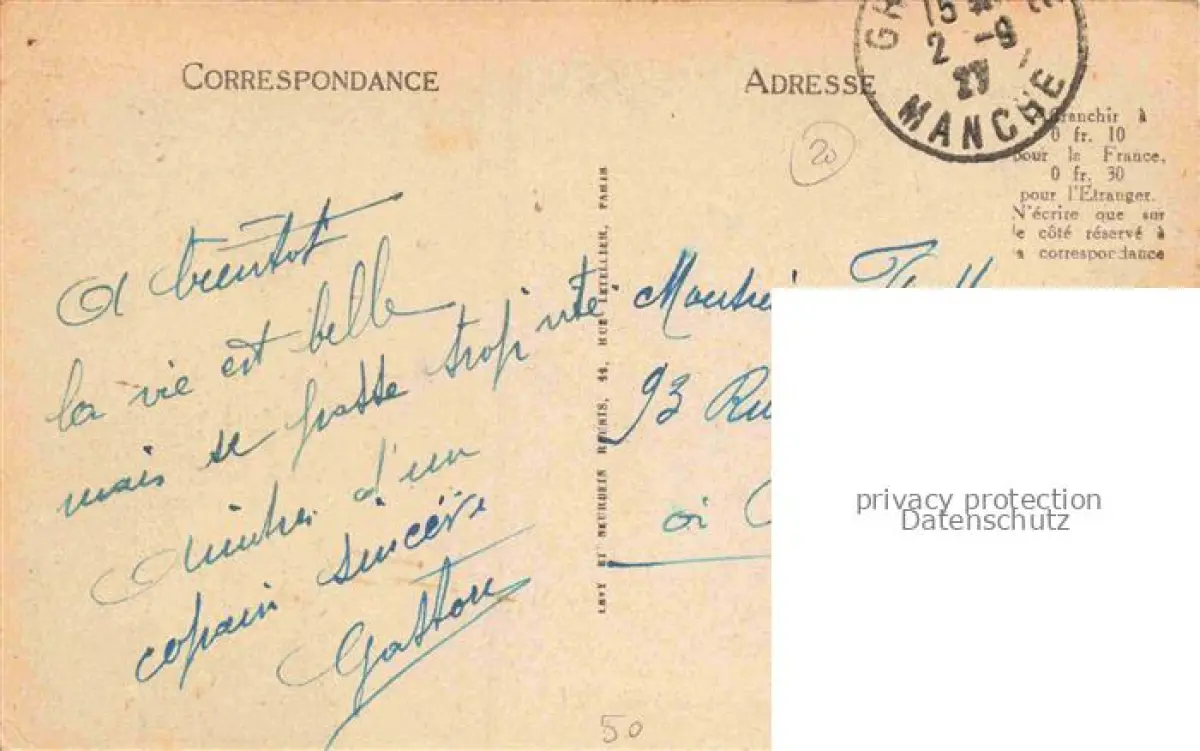 CORRESPONDANCE
A bientôt
la vie est belle
mais se passe trop vite
d'un
copain sincère
Gaston
50
LEVY ET NEURDEIN REUNIS, 44, RUE LETELLIER, PARIS
ADRESSE
15
2 -9
27
MANCHE
20
Affranchir à
0 fr. 10
pour la France,
0 fr. 30
pour l'Etranger.
N'écrire que sur
le côté réservé à
la correspondance
93 Ru
à
privacy protection
Datenschutz